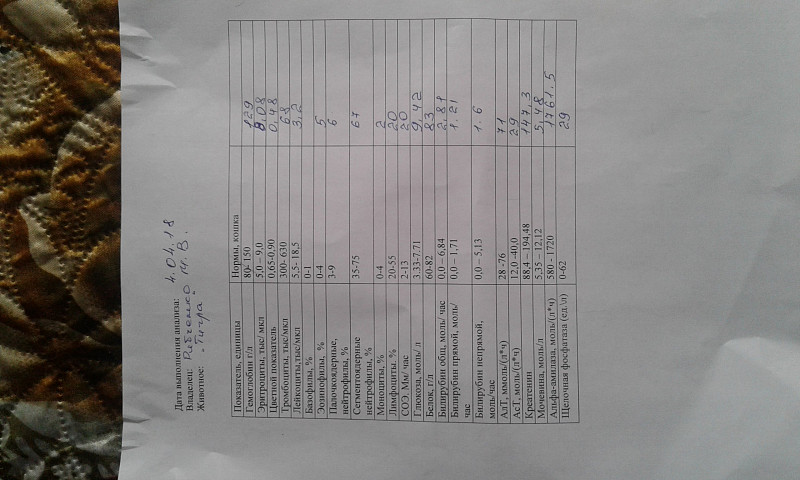 Дата выполнения анализа: 4.01.18
Владелец: Рябченко М.В.
Животное: "Тигра"
Показатель, единицы Нормы, кошка
Гемоглобин г/л 80- 150 129
Эритроциты, тыс/ мкл 5,0 – 9,0 8,08
Цветной показатель 0,65-0,90 0,48
Тромбоциты, тыс/мкл 300- 630 68
Лейкоциты,тыс/мкл 5,5- 18,5 3,2
Базофилы, % 0-1
Эозинофилы, % 0-4 5
Палочкоядерные, нейтрофилы, % 3-9 6
Сегментоядерные нейтрофилы, % 35-75 67
Моноциты, % 0-4 2
Лимфоциты, % 20-55 20
СОЭ, Мм/ час 2-13 20
Глюкоза, моль/ л 3,33-7,71 9,42
Белок, г/л 60-82 83
Билирубин общ, моль/ час 0,0 – 6,84 2,81
Билирубин прямой, моль/ час 0,0 – 1,71 1.21
Билирубин непрямой, моль/час 0,0 – 5,13 1.6
АлТ, ммоль/(л*ч) 28 -76 71
АсТ, моль/(л*ч) 12,0 -40,0 29
Креатенин 88,4 – 194,48 147,3
Мочевина, моль/л 5,35 – 12,12 5,48
Альфа-амилаза, моль/(л*ч) 580 - 1720 1761.5
Щелочная фосфатаза (ед.\л) 0-62 29